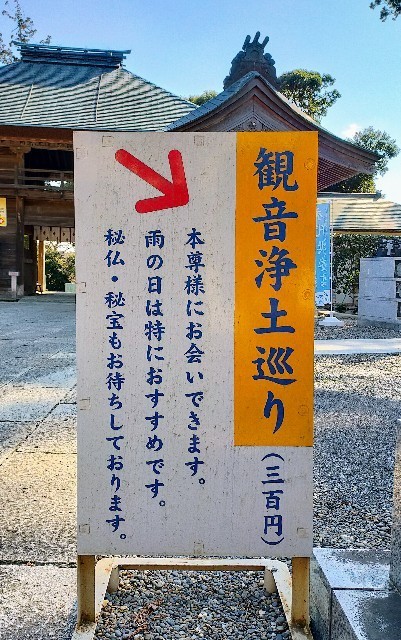 観音浄土巡り
(三百円)
本尊様にお会いできます。
雨の日は特におすすめです。
秘仏・秘宝もお待ちしております。